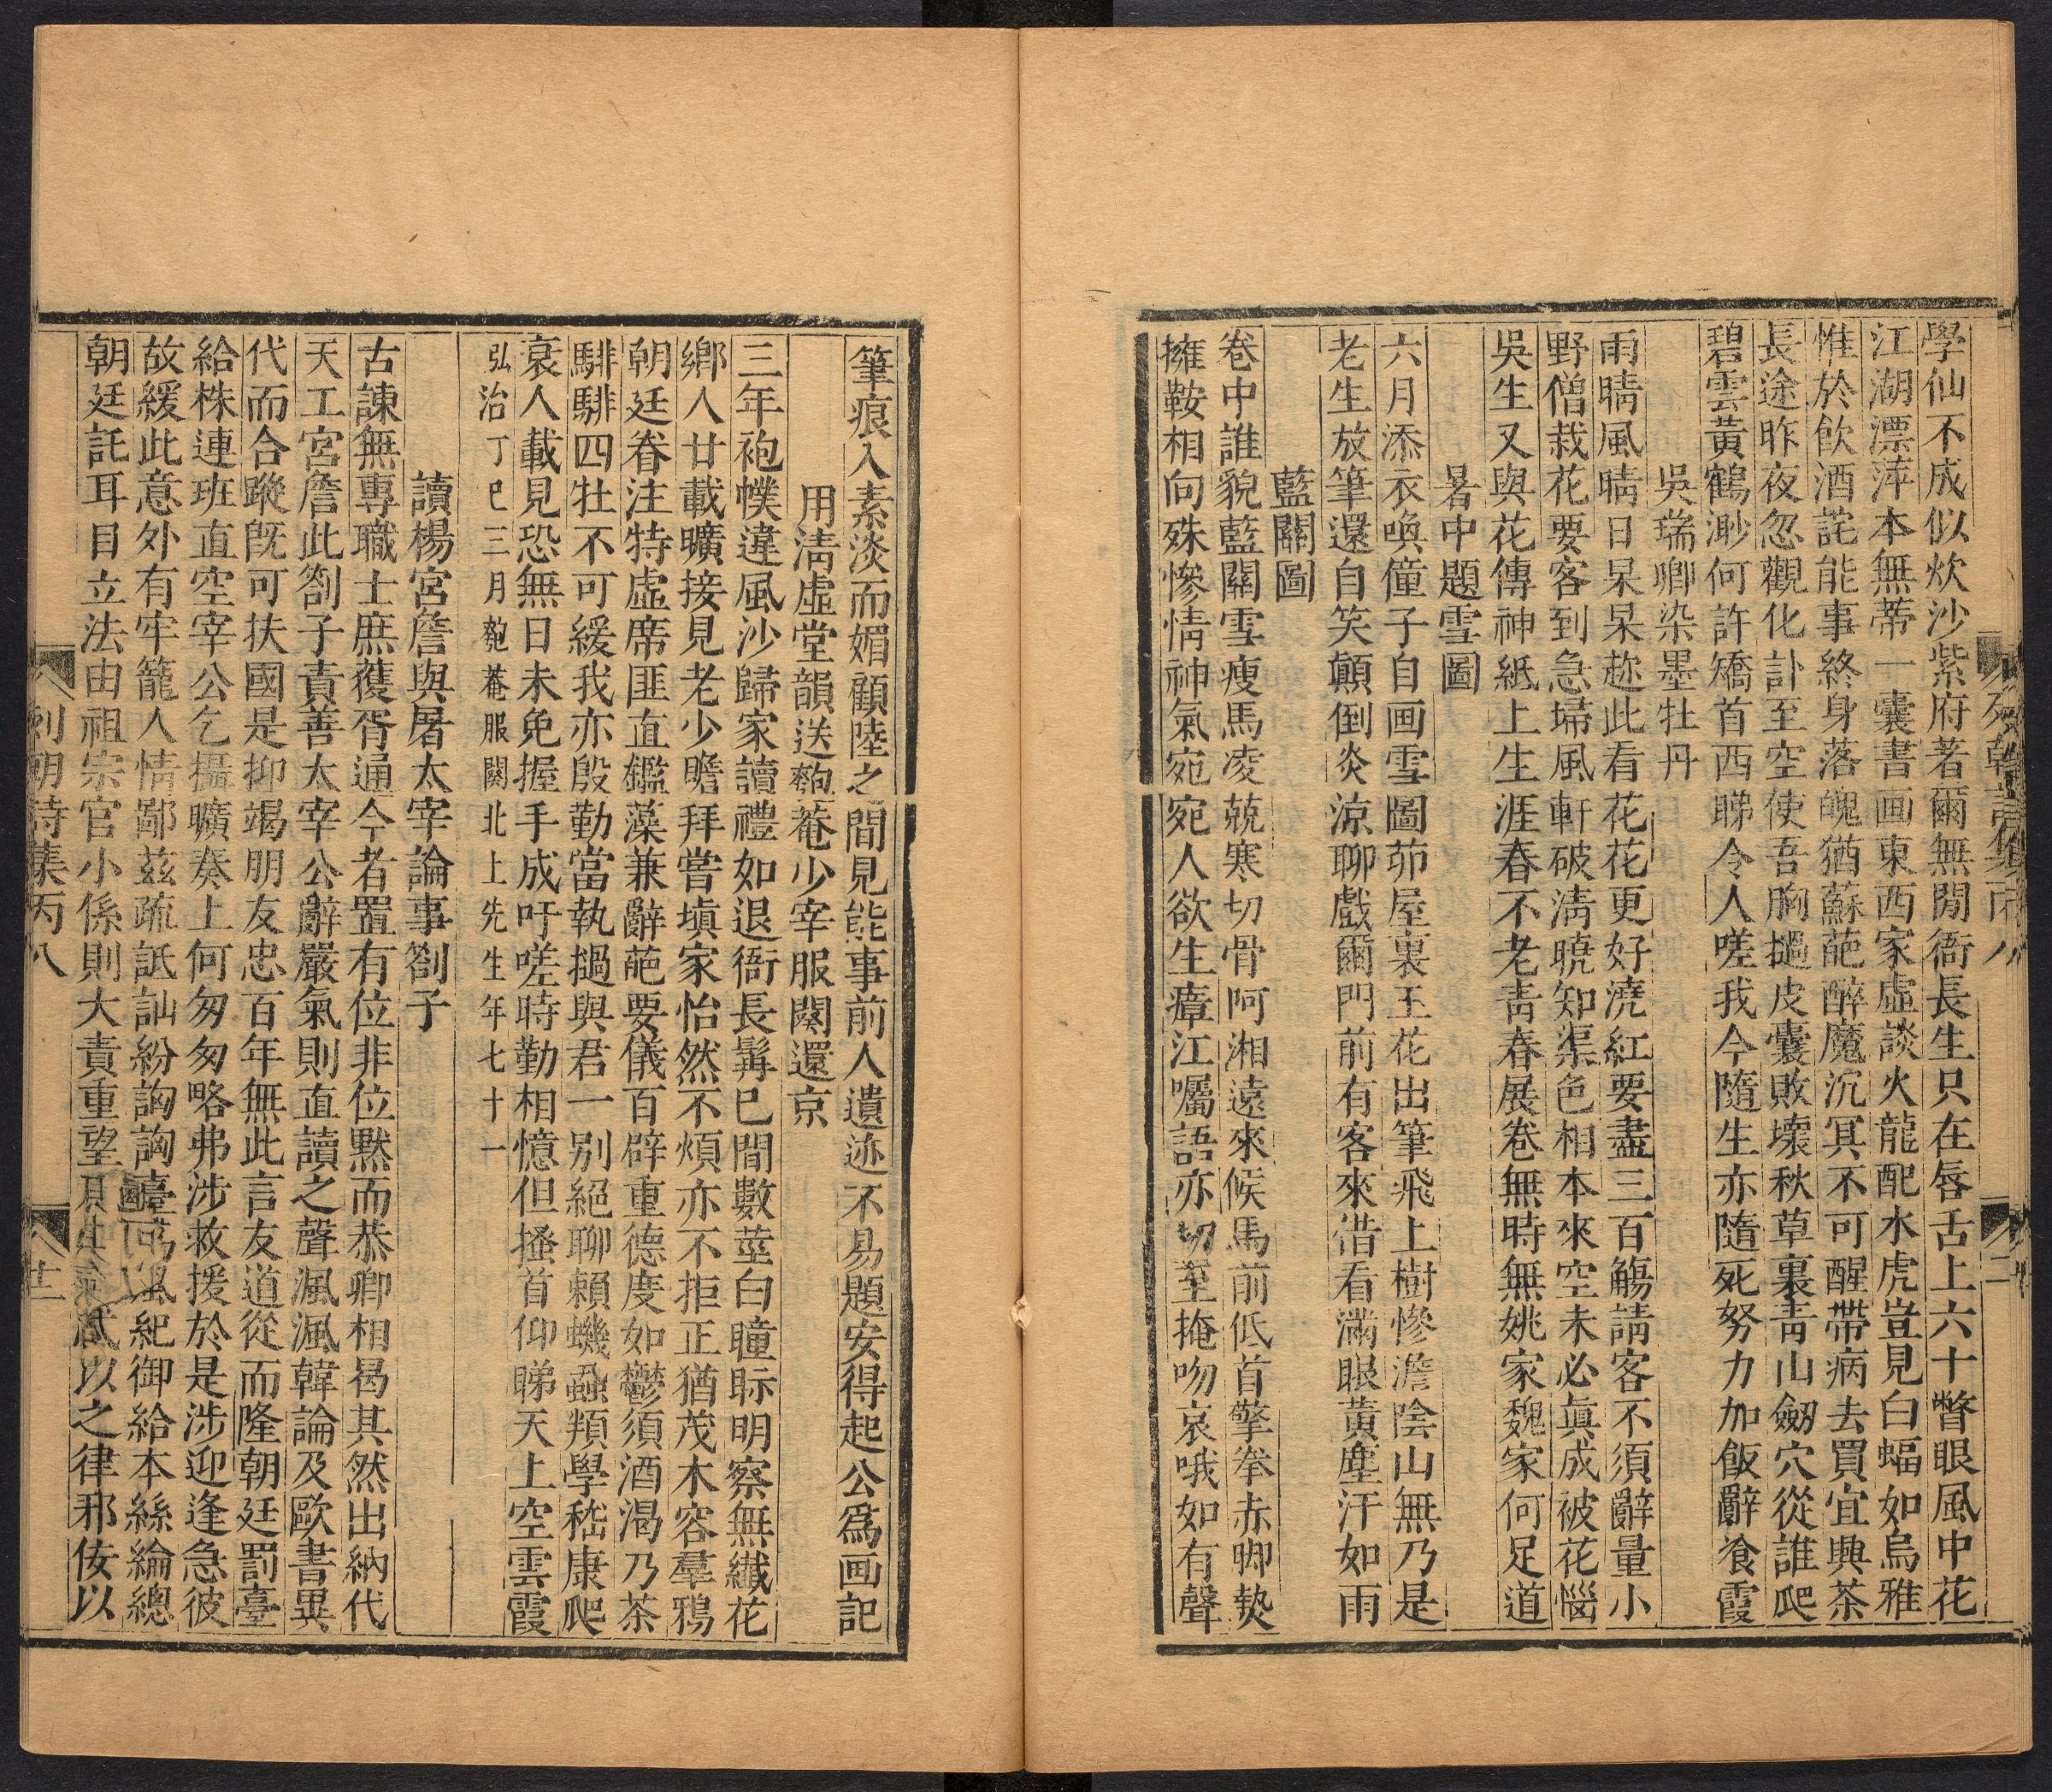 學仙不成似炊沙紫府著爾無閒衙長生只在唇舌上六十瞥眼風中花
江湖漂萍本無蒂一囊書画東西家虛談火龍配水虎豈見白蝠如烏雅
惟於飲酒詫能事終身落魄猶蘇葩醉魔沉冥不可醒帶病去買宜興茶
長途昨夜忽觀化訃至空使吾胸撾皮囊敗壞秋草裏靑山劒穴從誰爬
碧雲黃鶴渺何許矯首西睇令人嗟我今隨生亦隨死努力加飯辭飡霞
吳瑞卿染墨牡丹
雨晴風晴日杲杲趂此看花花更好澆紅要盡三百觴請客不須辭量小
野僧栽花要客到急埽風軒破淸曉知渠色相本來空未必眞成被花惱
吳生又與花傳神紙上生涯春不老靑春展卷無時無姚家魏家何足道
暑中題雪圖
六月添衣喚僮子自画雪圖茆屋裏玉花出筆飛上樹慘澹陰山無乃是
老生放筆還自笑顚倒炎涼聊戲爾門前有客來借看滿眼黃塵汗如雨
藍關圖
卷中誰貌藍關雪瘦馬凌兢寒切骨阿湘遠來候馬前低首擎拳赤脚熱
擁鞍相向殊慘情神氣宛宛人欲生瘴江囑語亦切至掩吻哀哦如有聲
列朝詩集丙八
筆痕入素淡而媚顧陸之間見能事前人遺迹不易題安得起公爲画記
用淸虛堂韻送匏菴少宰服闋還京
三年袍幞違風沙歸家讀禮如退衙長髯已間數莖白瞳眎明察無纖花
鄉人廿載曠接見老少瞻拜嘗塡家怡然不煩亦不拒正猶茂木容羣鴉
朝廷眷注特虛席匪直鑑藻兼辭葩要儀百辟重德度如鬱須酒渴乃茶
騑騑四牡不可緩我亦殷勤當執撾與君一別絕聊賴蟣蝨纇學嵇康爬
衰人載見恐無日未免握手成吁嗟時勤相憶但搔首仰睇天上空雲霞
弘治丁巳三月匏菴服闋北上先生年七十一
讀楊宮詹與屠太宰論事劄子
古諫無專職士庶獲胥通今者置有位非位黙而恭卿相曷其然出納代
天工宮詹此劄子責善太宰公辭嚴氣則直讀之聲渢渢韓論及歐書異
代而合蹤旣可扶國是抑竭朋友忠百年無此言友道從而隆朝廷罰臺
給株連班直空宰公乞攝曠奏上何匆匆略弗涉救援於是涉迎逢急彼
故緩此意外有牢籠人情鄙茲疏詆訕紛詾詾臺風紀御給本絲綸總
朝廷託耳目立法由祖宗官小係則大責重望以之律邪侫以
列朝詩集丙八